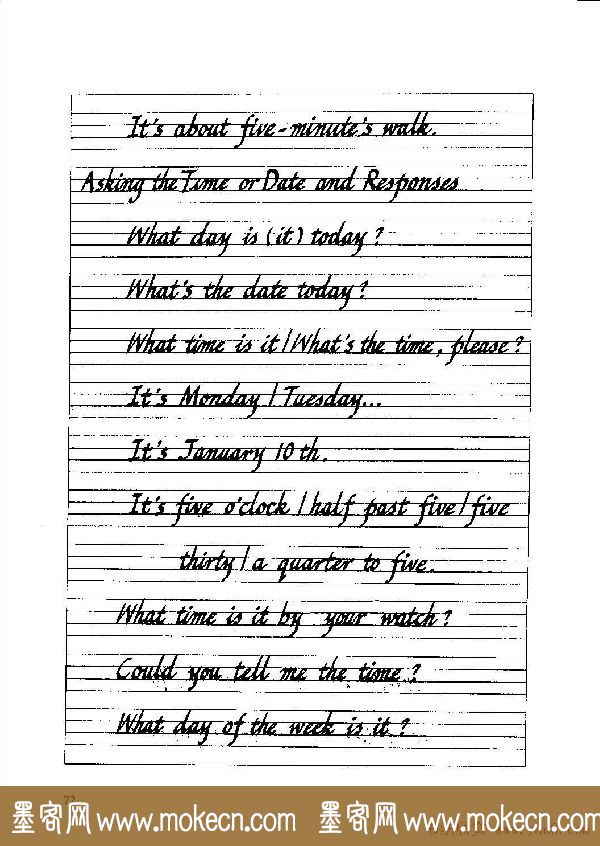 It's about five-minute's walk.
Asking the Time or Date and Responses
What day is (it) today?
What's the date today?
What time is it/What's the time, please?
It's Monday/Tuesday...
It's January 10th.
It's five o'clock/half past five/five
thirty/a quarter to five.
What time is it by your watch?
Could you tell me the time?
What day of the week is it?
72
墨客网 www.mokecn.com 墨客网 www.mokecn.com